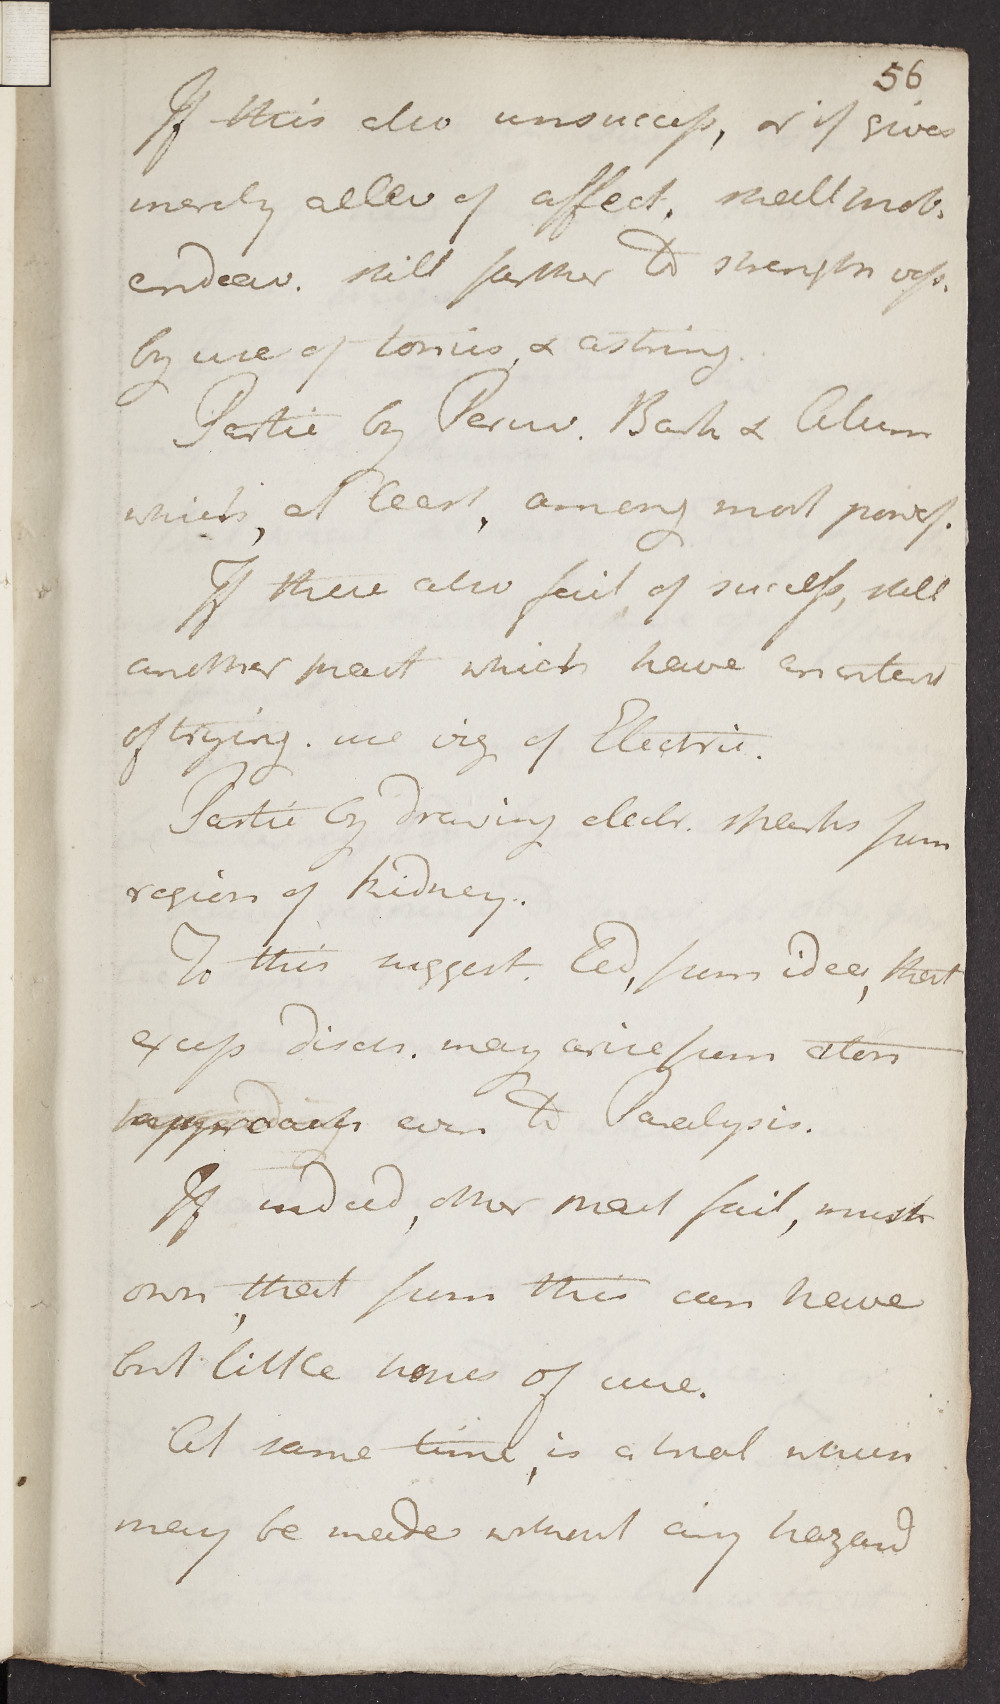 56
If this also unsuccess, or if gives
merely allev of affect. shall
endeav. still farther to strength vess.
by use of tonics, & astring.
Partic by Peruv. Bark & Alum
which, at least, among most powf.
If these also fail of success, still
another pract which have
of trying. use viz of Electric.
Partic by drawing electr. sparks from
region of Kidney.
To this suggest. led, from idea, that
excess disch. may arise from aton
even to Paralysis.
If indeed, other pract fail, must
own, that from this can have
but little hopes of cure.
At same time, is a trial which
may be made without any hazard